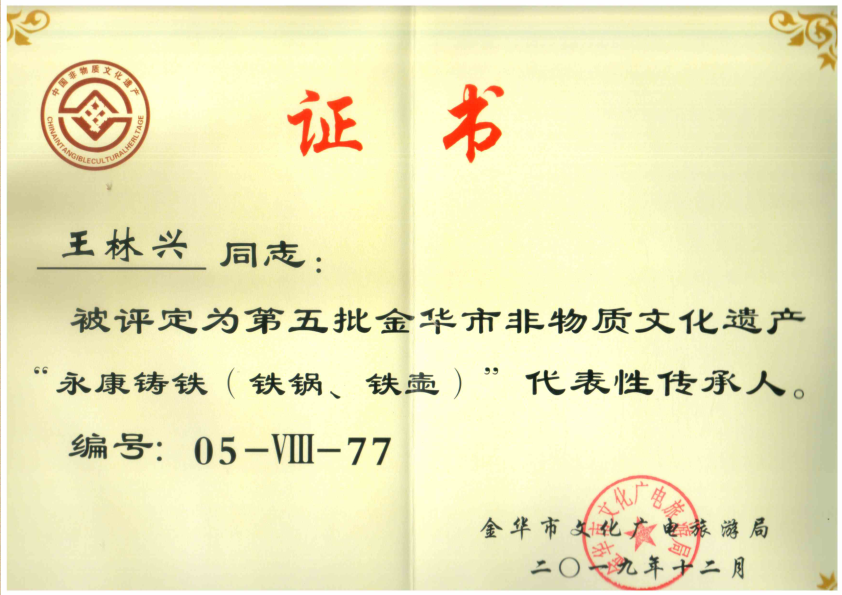 中国非物质文化遗产
CHINAINTANGIBLECULTURALHERITAGE
证 书
王林兴 同志：
被评定为第五批金华市非物质文化遗产
“永康铸铁（铁锅、铁壶）” 代表性传承人。
编号：05-Ⅷ-77
金华市文化广电旅游局
金华市文化广电旅游局
二〇一九年十二月